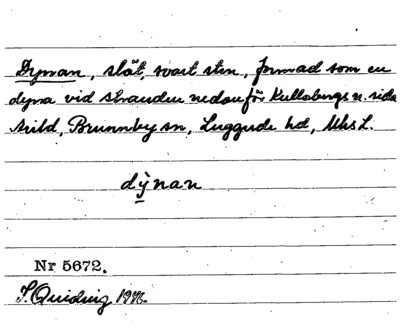 Dynan, slät, svart sten, formad som en
dyna vid stranden nedanför Kullabergs n. sida
Arild, Brunnby sn, Luggude hd, Mhs L.
dỳnan
Nr 5672.